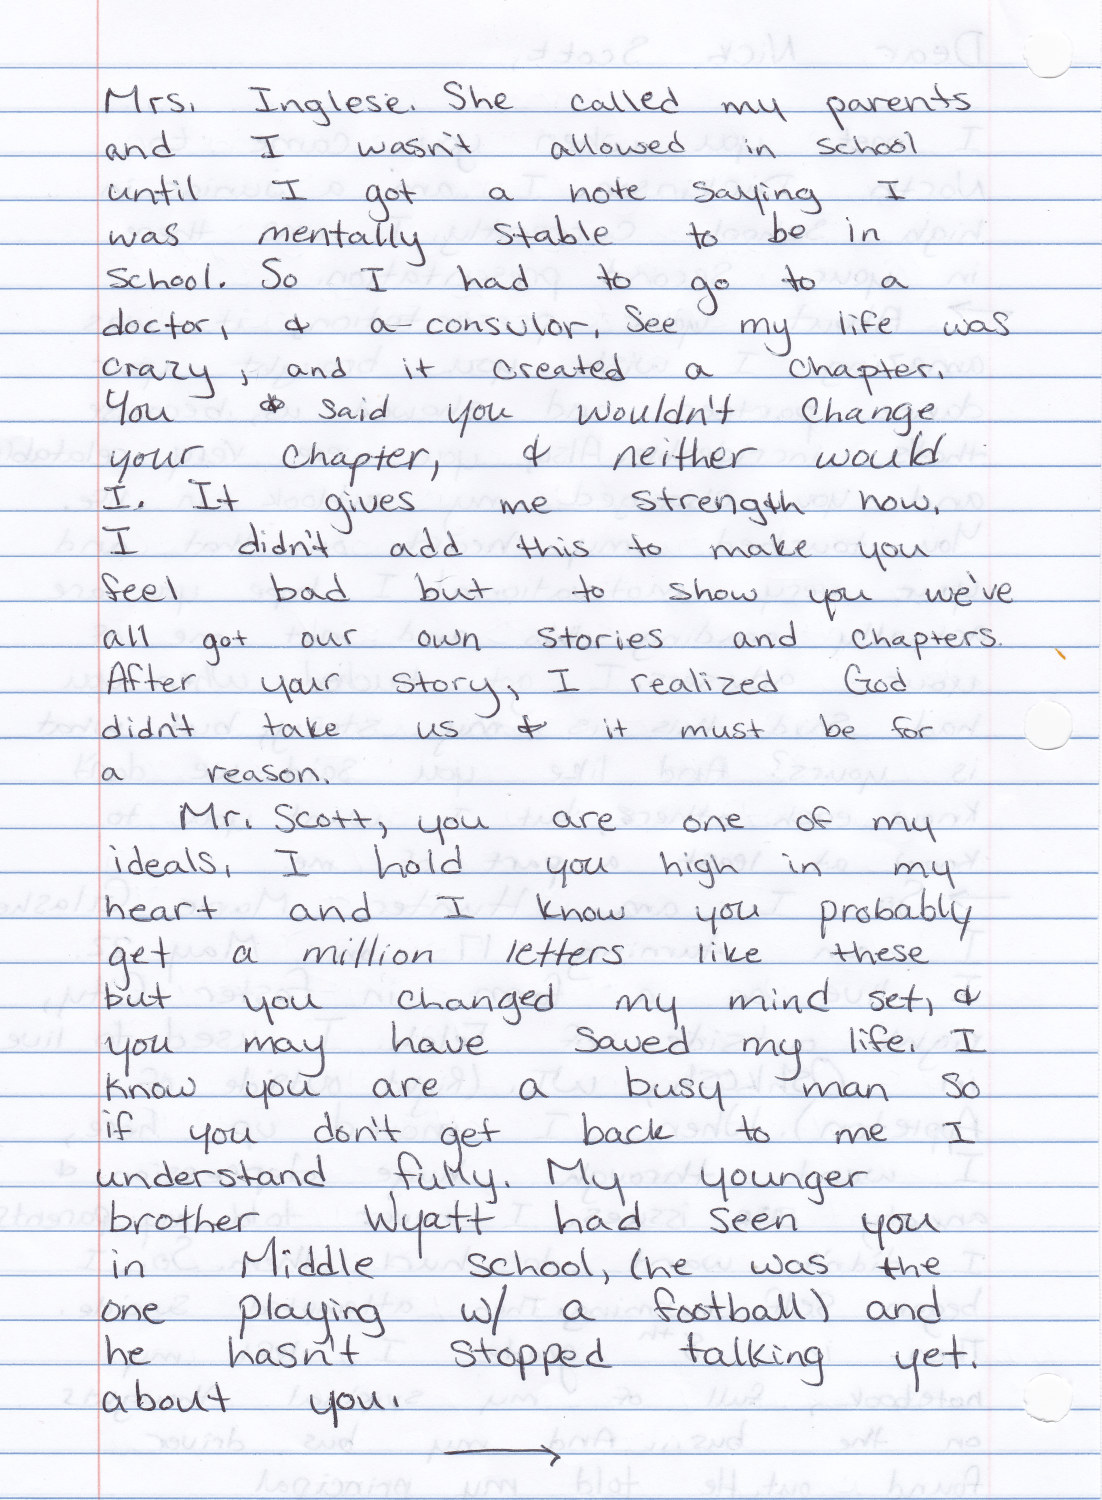 Mrs. Inglese. She called my parents
and I wasn't allowed in school
until I got a note saying I
was mentally stable to be in
school. So I had to go to a
doctor, & a consulor. See my life was
crazy, and it created a chapter.
You & said you wouldn't change
your chapter, & neither would
I. It gives me strength now.
I didn't add this to make you
feel bad but to show you we've
all got our own stories and chapters.
After your story, I realized God
didn't take us & it must be for
a reason.
Mr. Scott, you are one of my
ideals. I hold you high in my
heart and I know you probably
get a million letters like these
but you changed my mind set, &
you may have saved my life. I
know you are a busy man so
if you don't get back to me I
understand fully. My younger
brother Wyatt had seen you
in Middle school, (he was the
one playing w/ a football) and
he hasn't stopped talking yet.
about you.
→